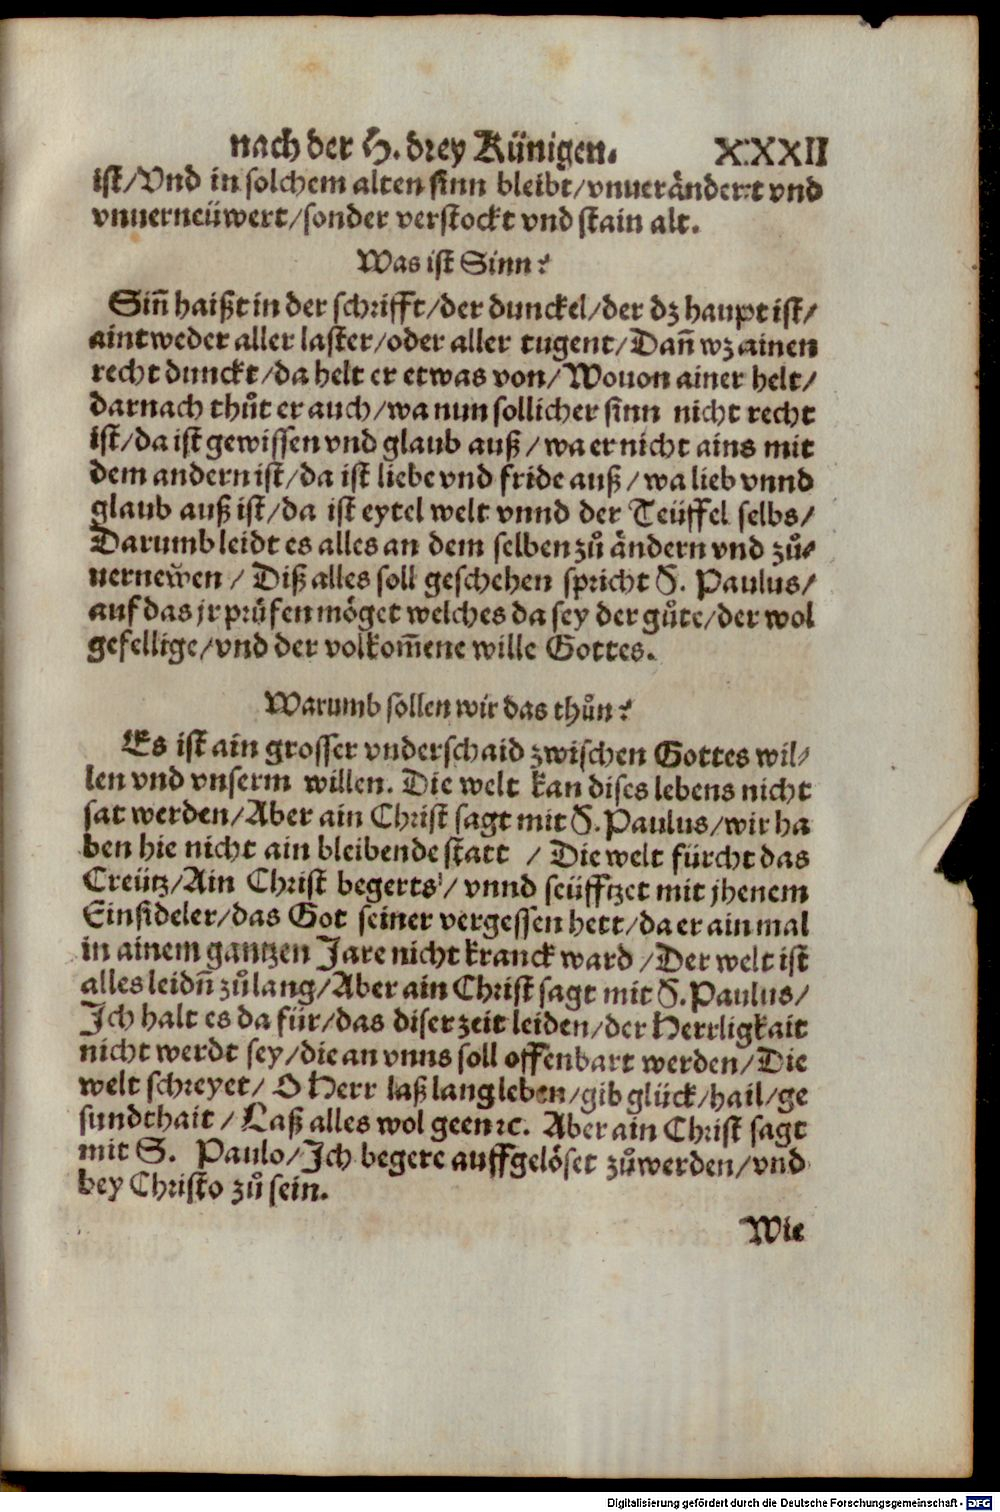 nach der H. drey Künigen. XXXII
ist/Vnd in solchem alten sinn bleibt/vnuerändert vnd
vnuerneüwert/sonder verstockt vnd stain alt.
Was ist Sinn?
Siñ haißt in der schrifft/der dunckel/der dz haupt ist/
aintweder aller laster/oder aller tugent/Dañ wz ainen
recht dunckt/da helt er etwas von/Wouon ainer helt/
darnach thůt er auch/wa nun sollicher sinn nicht recht
ist/da ist gewissen vnd glaub auß/wa er nicht ains mit
dem andern ist/da ist liebe vnd fride auß/wa lieb vnnd
glaub auß ist/da ist eytel welt vnnd der Teüffel selbs/
Darumb leidt es alles an dem selben zů ändern vnd zů⸗
uernew̃en/Diß alles soll geschehen spricht S. Paulus/
auf das jr prüfen möget welches da sey der gůte/der wol
gefellige/vnd der volkom̃ene wille Gottes.
Warumb sollen wir das thůn?
Es ist ain grosser vnderschaid zwischen Gottes wil⸗
len vnd vnserm willen. Die welt kan dises lebens nicht
sat werden/Aber ain Christ sagt mit S. Paulus/wir ha
ben hie nicht ain bleibende statt/Die welt fürcht das
Creütz/Ain Christ begerts/vnnd seüfftzet mit jhenem
Einsideler/das Got seiner vergessen hett/da er ain mal
in ainem gantzen Jare nicht kranck ward/Der welt ist
alles leidñ zů lang/Aber ain Christ sagt mit S. Paulus/
Ich halt es da für/das diser zeit leiden/der Herrligkait
nicht werdt sey/die an vnns soll offenbart werden/Die
welt schreyet/O Herr laß lang leben/gib glück/hail/ge
sundthait/Laß alles wol geen ꝛc. Aber ain Christ sagt
mit S. Paulo/Ich begere auffgelöset zů werden/vnd
bey Christo zů sein.
Wie
Digitalisierung gefördert durch die Deutsche Forschungsgemeinschaft - DFG